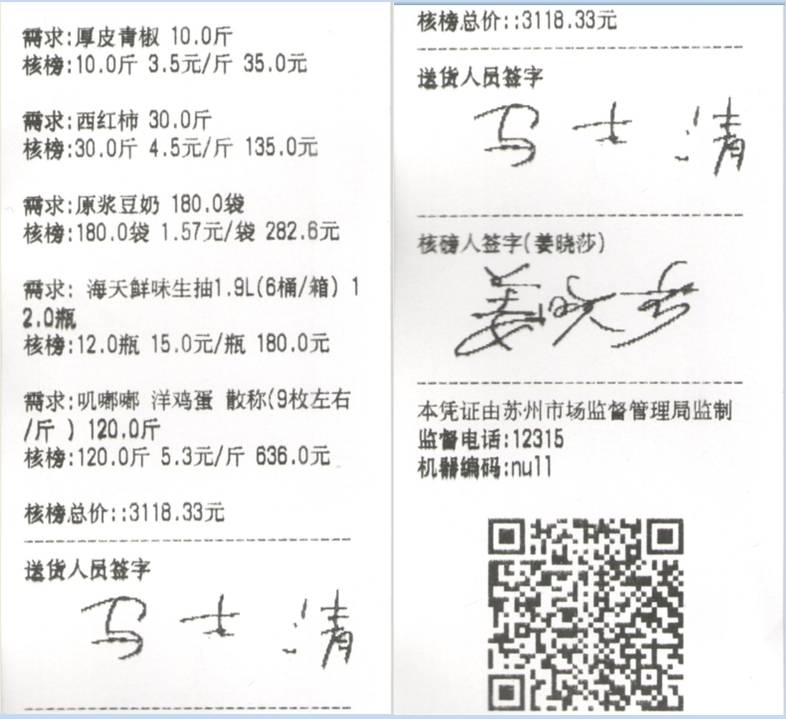 需求:厚皮青椒 10.0斤
核榜:10.0斤 3.5元/斤 35.0元
需求:西红柿 30.0斤
核榜:30.0斤 4.5元/斤 135.0元
需求:原浆豆奶 180.0袋
核榜:180.0袋 1.57元/袋 282.6元
需求: 海天鲜味生抽1.9L(6桶/箱) 1
2.0瓶
核榜:12.0瓶 15.0元/瓶 180.0元
需求:叽嘟嘟 洋鸡蛋 散称(9枚左右
/斤 ) 120.0斤
核榜:120.0斤 5.3元/斤 636.0元
核榜总价::3118.33元
送货人员签字
马士清
核榜总价::3118.33元
送货人员签字
马士清
核磅人签字(姜晓莎)
姜晓莎
本凭证由苏州市场监督管理局监制
监督电话:12315
机器编码:null